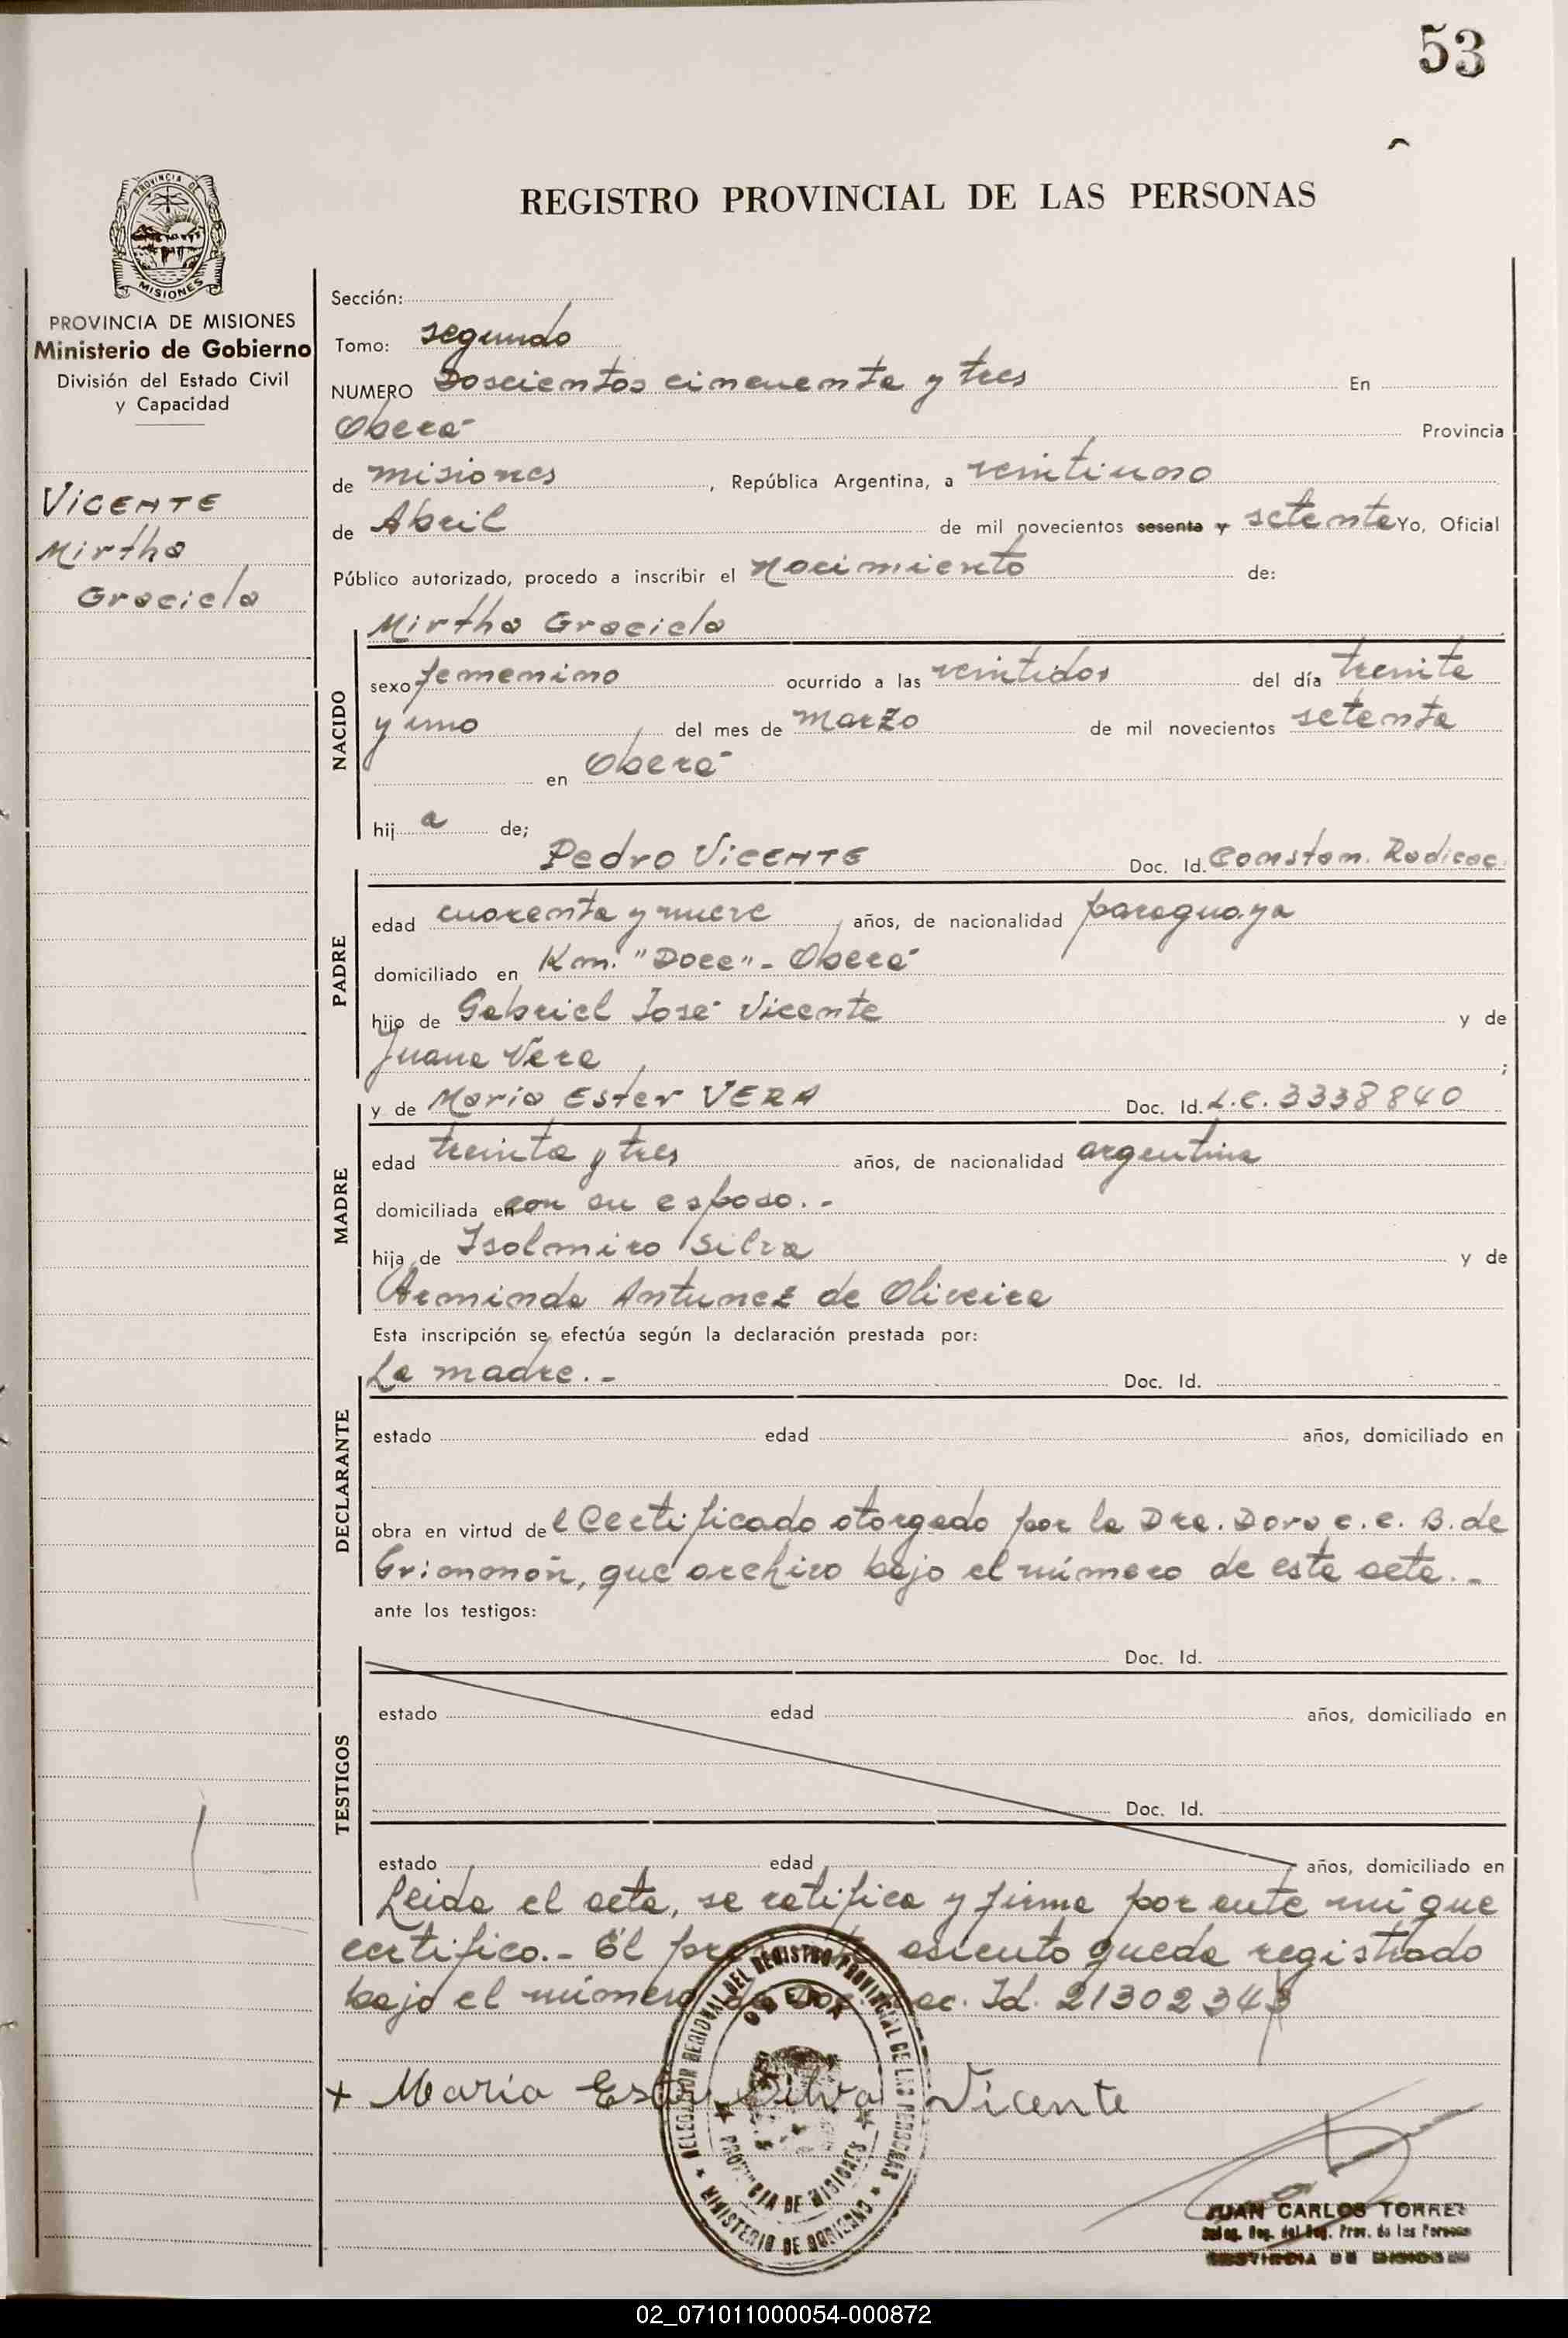 53
REGISTRO PROVINCIAL DE LAS PERSONAS
PROVINCIA DE
MISIONES
PROVINCIA DE MISIONES
Ministerio de Gobierno
División del Estado Civil
y Capacidad
VICENTE
Mirtha
Graciela
Sección:
Tomo: segundo
NUMERO Doscientos cincuenta y tres En
Oberá Provincia
de misiones, República Argentina, a veintiuno
de Abril de mil novecientos sesenta y setenta Yo, Oficial
Público autorizado, procedo a inscribir el Nacimiento de:
Mirtha Graciela
NACIDO
sexo femenino ocurrido a las veintidos del día treinta
y uno del mes de marzo de mil novecientos setenta
en Oberá
hij a de;
Pedro VICENTE Doc. Id. Constan. Radicac.
PADRE
edad cuarenta y nueve años, de nacionalidad paraguaya
domiciliado en Km. "Doce"- Oberá
hijo de Gabriel José Vicente y de
Juana Vera ;
y de Maria Ester VERA Doc. Id. L.C. 3338840
MADRE
edad treinta y tres años, de nacionalidad argentina
domiciliada en con su esposo.-
hija de Isolmiro Silva y de
Arminda Antunez de Oliveira
Esta inscripción se efectúa según la declaración prestada por:
La madre.- Doc. Id.
DECLARANTE
estado edad años, domiciliado en
obra en virtud del Certificado otorgado por la Dra. Dora e. e. B. de
que archivo bajo el número de esta acta.-
ante los testigos:
Doc. Id.
TESTIGOS
estado edad años, domiciliado en
Doc. Id.
estado edad años, domiciliado en
Leida el acta, se ratifica y firma por ante mí que
certifico.- El asiento queda registrado
bajo el número de Doc. Id. 2130234
+ Maria Ester Silva Vicente
DELEGACION REGIONAL DEL REGISTRO PROVINCIAL DE LAS PERSONAS
OBERA
PROVINCIA DE MISIONES
MINISTERIO DE GOBIERNO
JUAN CARLOS TORRES
Deleg. Reg. del Reg. Prov. de las Personas
PROVINCIA DE MISIONES
02_071011000054-000872